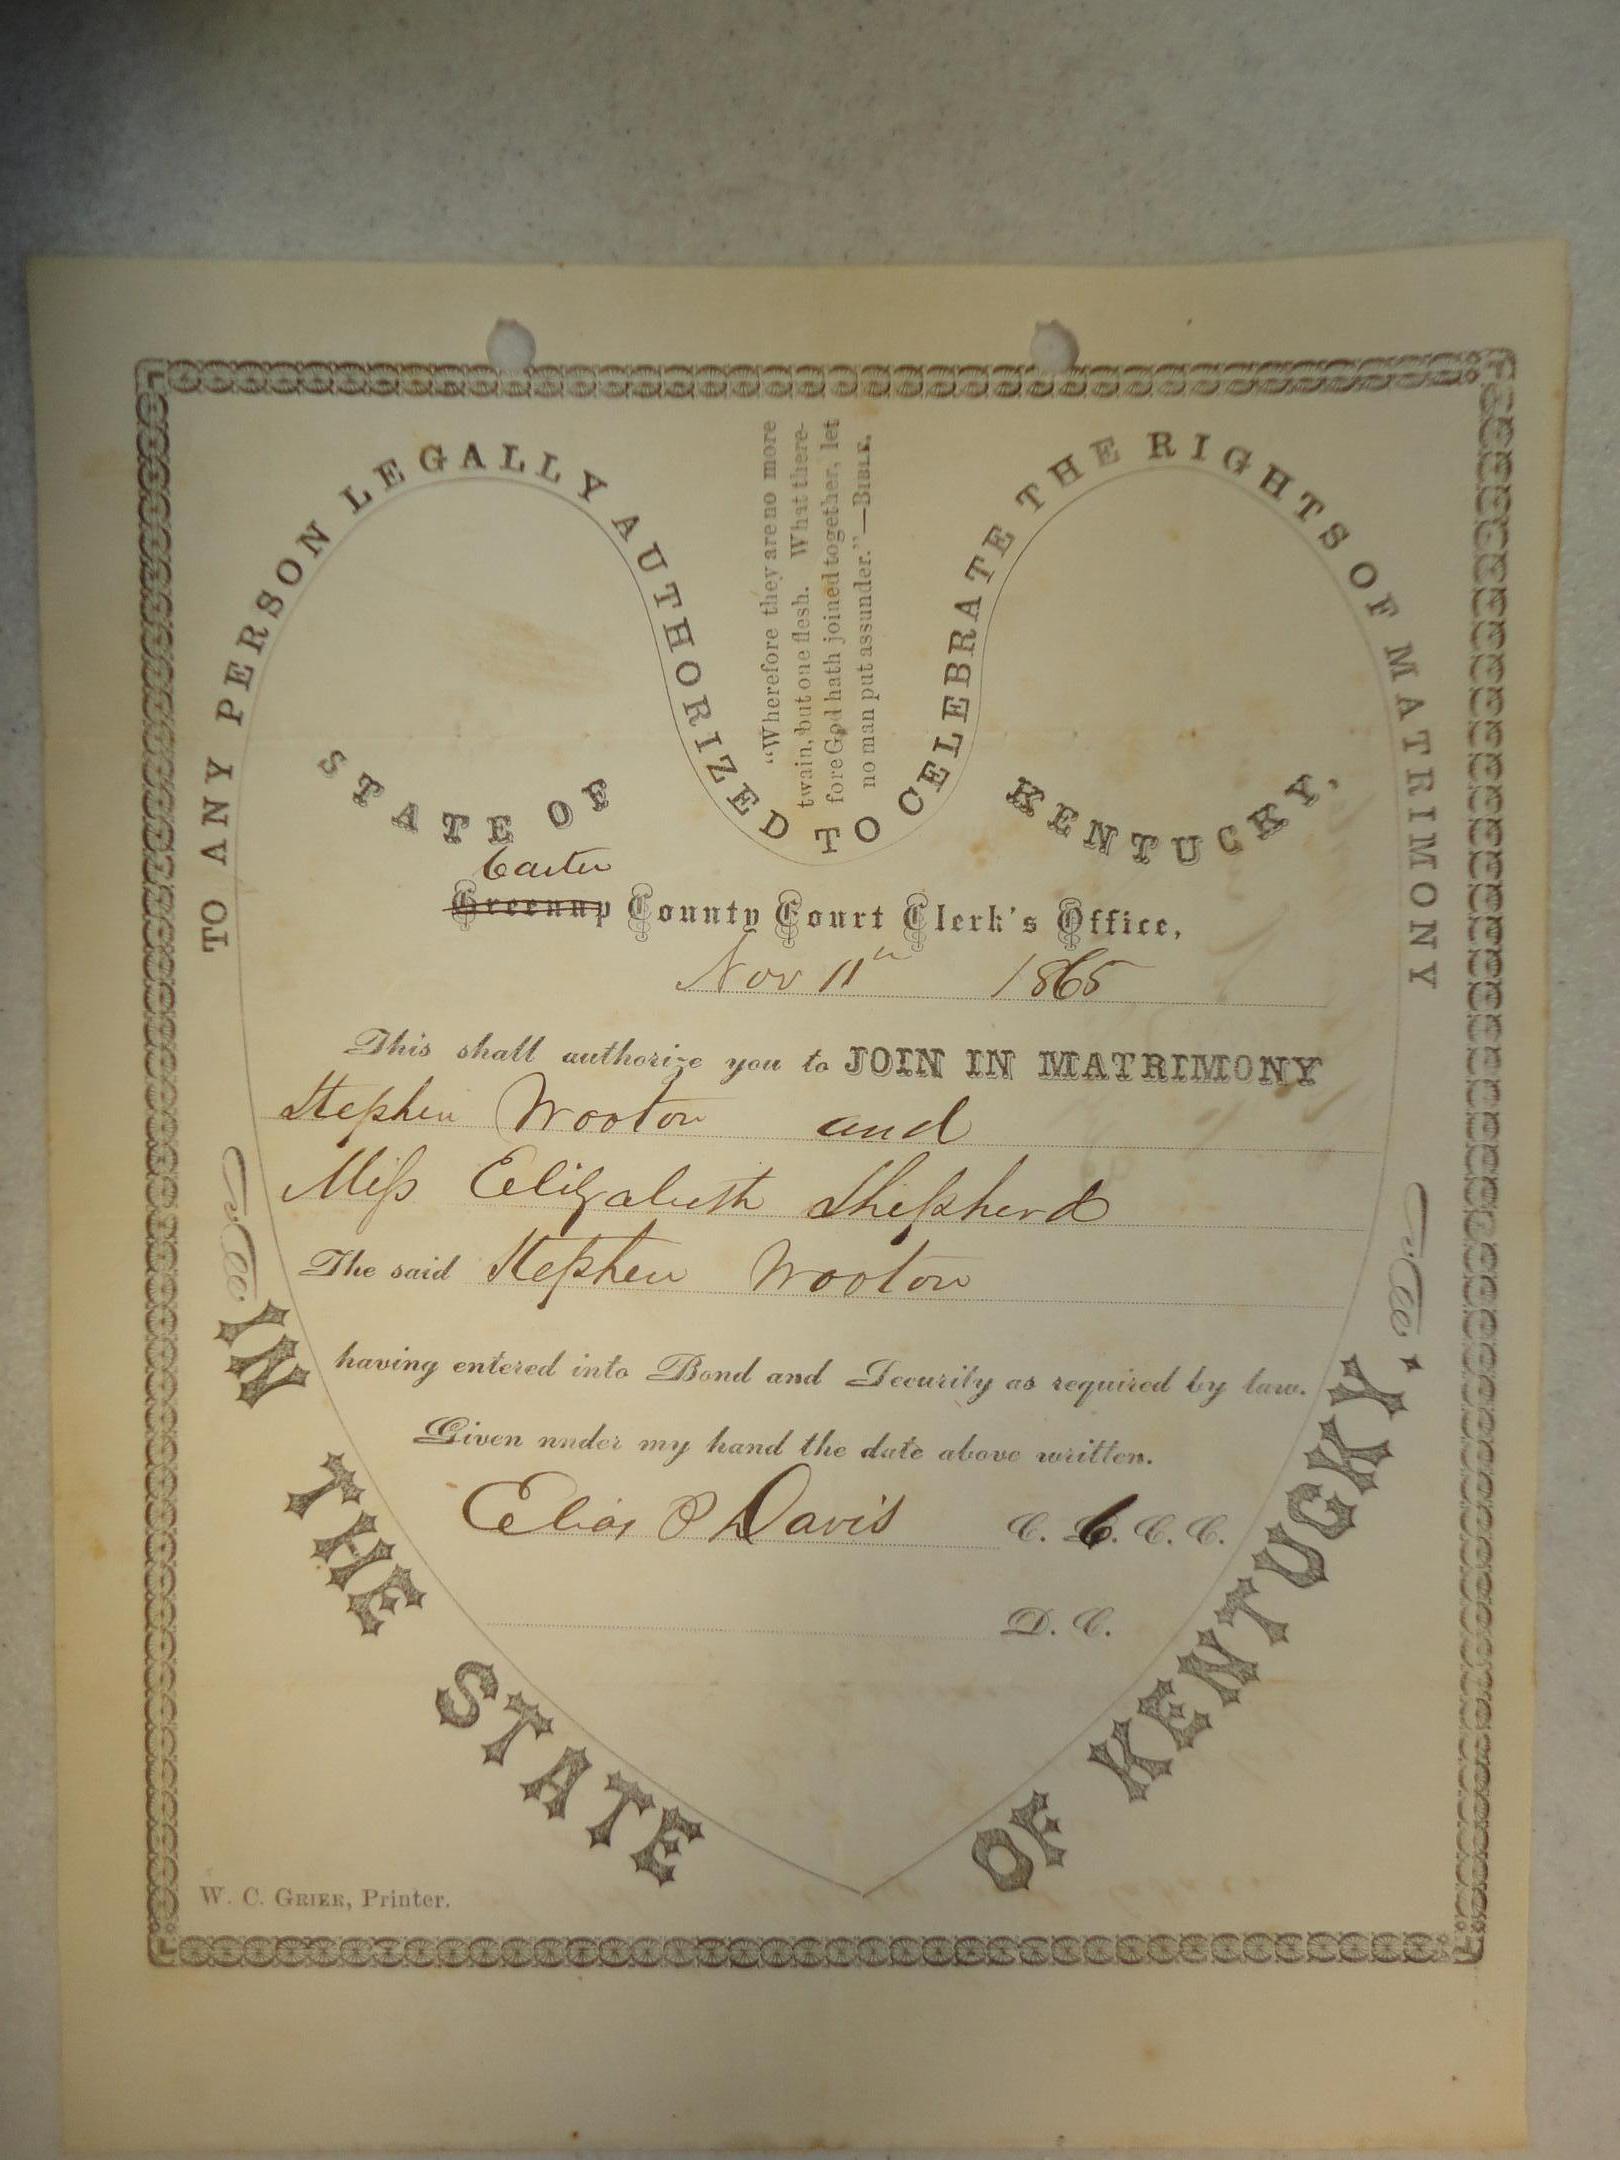 TO ANY PERSON LEGALLY AUTHORIZED TO CELEBRATE THE RIGHTS OF MATRIMONY
IN THE STATE OF KENTUCKY.
"Wherefore they are no more
twain, but one flesh. What there-
fore God hath joined together, let
no man put assunder."—BIBLE.
STATE OF KENTUCKY,
Carter
Greenup County Court Clerk's Office,
Nov 11th 1865
This shall authorize you to JOIN IN MATRIMONY
Stephen Wooton and
Miss Elizabeth Shepherd
The said Stephen Wooton
having entered into Bond and Security as required by law.
Given nnder my hand the date above written.
Elias P Davis C. C. C. C.
D. C.
W. C. GRIER, Printer.